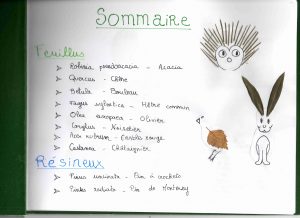 Sommaire
Feuillus
➤ Robinia pseudoacacia - Acacia
➤ Quercus - Chêne
➤ Betula - Bouleau
➤ Fagus sylvatica - Hêtre commun
➤ Olea europaea - Olivier
➤ Corylus - Noisetier
➤ Acer rubrum - Erable rouge
➤ Castanea - Châtaignier
Résineux
➤ Pinus uncinata - Pin à crochets
➤ Pinus radiata - Pin de Monterey